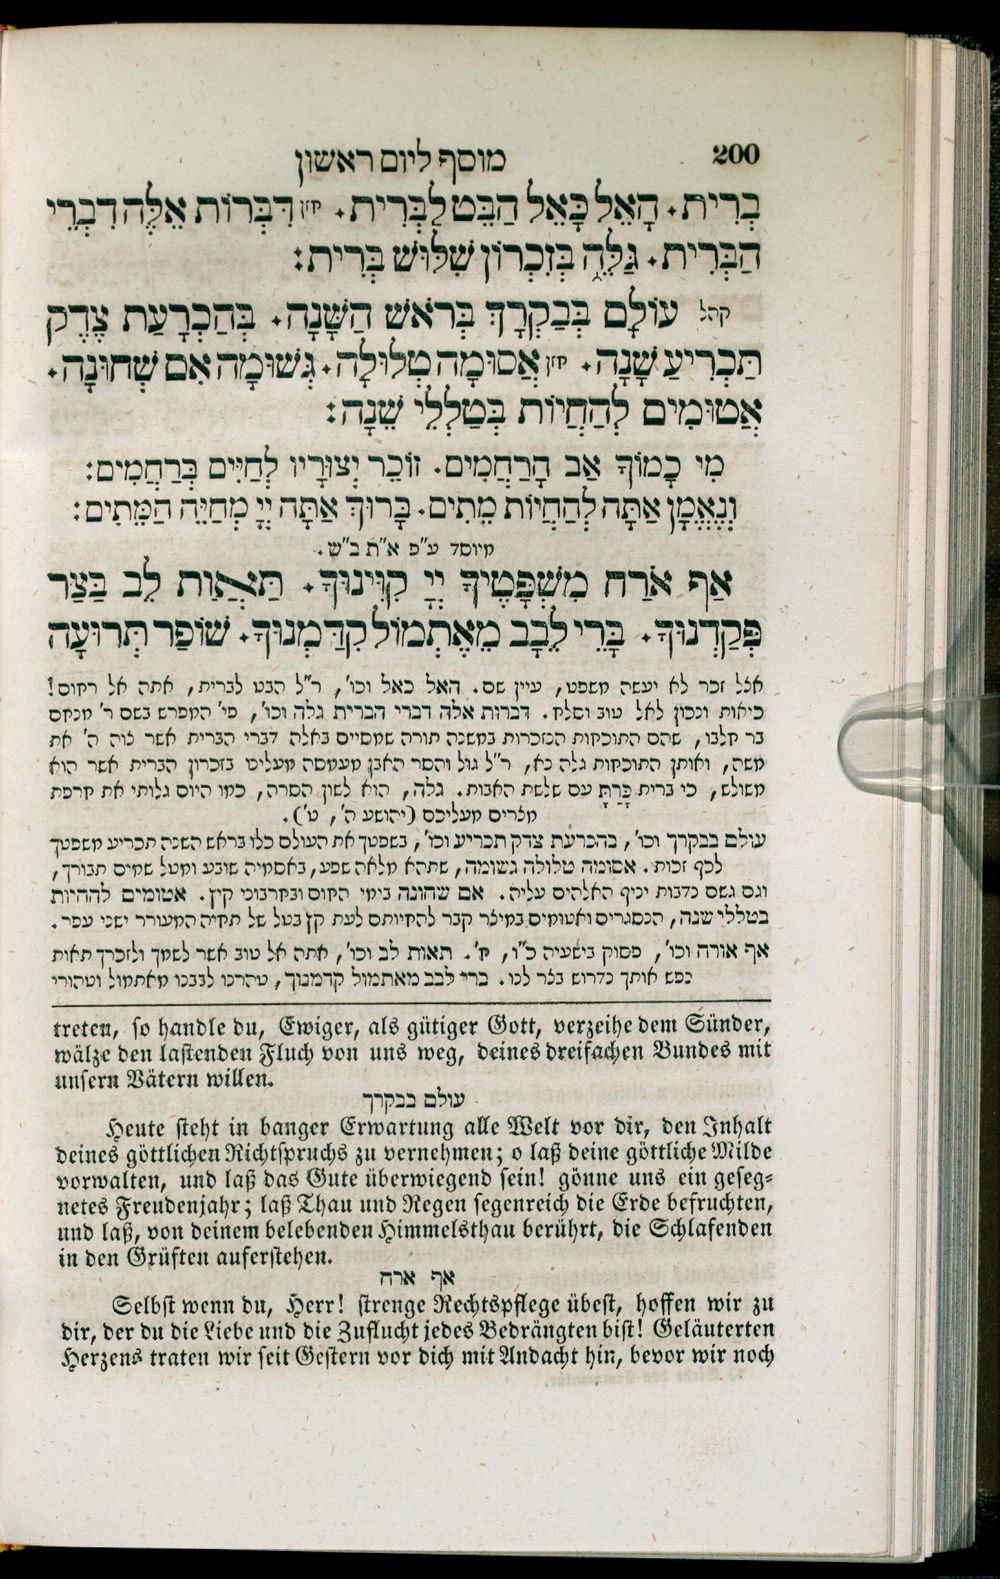 200 מוסף ליום ראשון
בְּרִית. הָאֵל כָּאֵל הַבֵּט לַבְּרִית. חזן דִּבְּרוֹת אֵלֶּה דִבְרֵי
הַבְּרִית. גַּלֵּה בְּזִכְרוֹן שִׁלּוּשׁ בְּרִית:
קהל עוֹלָם בְּבַקְּרָךְ בְּרֹאשׁ הַשָּׁנָה. בְּהַכְרָעַת צֶדֶק
תַּכְרִיעַ שָׁנָה. חזן אֲסוּמָה טְלוּלָה. גְּשׁוּמָה אִם שְׁחוּנָה.
אֲטוּמִים לְהַחֲיוֹת בְּטַלְלֵי שֵׁנָה:
מִי כָמוֹךָ אַב הָרַחֲמִים. זוֹכֵר יְצוּרָיו לְחַיִּים בְּרַחֲמִים:
וְנֶאֱמָן אַתָּה לְהַחֲיוֹת מֵתִים. בָּרוּךְ אַתָּה יְיָ מְחַיֵּה הַמֵּתִים:
מיוסד ע״פ א״ת ב״ש.
אַף אֹרַח מִשְׁפָּטֶיךָ יְיָ קִוִּינוּךָ. תַּאֲוַת לֵב בַּצַּר
פְּקַדְנוּךָ. בָּרֵי לֵבָב מֵאֶתְמוֹל קִדַּמְנוּךָ. שׁוֹפַר תְּרוּעָה
אצל זכר לא יעשה משפט, עיין שם. האל כאל וכו', ר״ל הבט לברית, אתה אל רחום!
כיאות ונכון לאל טוב וסלח. דברות אלה דברי הברית גלה וכו', פי' המפרש בשם ר' מנחם
בר חלבו, שהם התוכחות הנזכרות במשנה תורה שמסיים באלה דברי הברית אשר צוה ה' את
משה, ואותן התוכחות גלה נא, ר״ל גול והסר האבן מעמסה מעלינו בזכרון הברית אשר הוא
משולש, כי ברית כָּרַתָּ עם שלשת האבות. גלה, הוא לשון הסרה, כמו היום גלותי את חרפת
מצרים מעליכם (יהושע ה', ט').
עולם בבקרך וכו', בהכרעת צדק תכריע וכו', בשפטך את העולם כלו בראש השנה תכריע משפטך
לכף זכות. אסומה טלולה גשומה, שתהא מלאה שפע, באסמיה שובע ומטל שמים תבורך,
וגם גשם נדבות יניף האלהים עליה. אם שחונה בימי החום ובחרבוני קיץ. אטומים להחיות
בטללי שנה, הנסגרים ואטומים במיצר קבר להחיותם לעת קץ בטל של תחיה המעורר ישני עפר.
אף אורח וכו', פסוק בישעיה כ״ו, ח'. תאות לב וכו', אתה אל טוב אשר לשמך ולזכרך תאות
נפש אותך נדרוש בצר לנו. ברי לבב מאתמול קדמנוך, טהרנו לבבנו מאתמול וטהורי
treten, so handle du, Ewiger, als gütiger Gott, verzeihe dem Sünder,
wälze den lastenden Fluch von uns weg, deines dreifachen Bundes mit
unsern Vätern willen.
עולם בבקרך
Heute steht in banger Erwartung alle Welt vor dir, den Inhalt
deines göttlichen Richtspruchs zu vernehmen; o laß deine göttliche Milde
vorwalten, und laß das Gute überwiegend sein! gönne uns ein geseg-
netes Freudenjahr; laß Thau und Regen segenreich die Erde befruchten,
und laß, von deinem belebenden Himmelsthau berührt, die Schlafenden
in den Grüften auferstehen.
אף ארח
Selbst wenn du, Herr! strenge Rechtspflege übest, hoffen wir zu
dir, der du die Liebe und die Zuflucht jedes Bedrängten bist! Geläuterten
Herzens traten wir seit Gestern vor dich mit Andacht hin, bevor wir noch